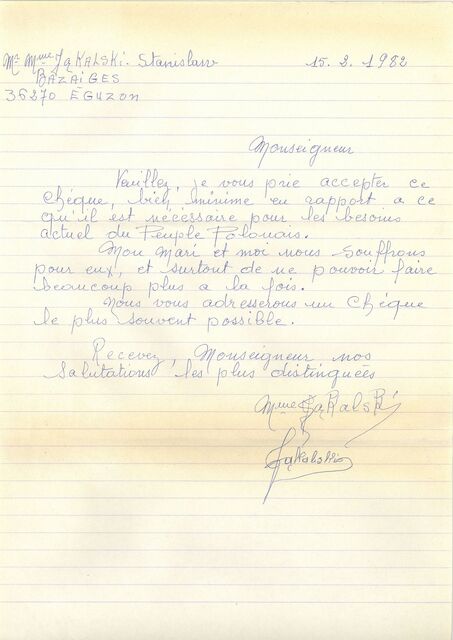 Mr Mme Jąkalski. Stanislaw 15. 2. 1982
BAZAIGES
36270 EGUZON
Monseigneur
Veuillez, je vous prie accepter ce
chèque, bien minime en rapport a ce
qu'il est nécessaire pour les besoins
actuel du Peuple Polonais.
Mon Mari et moi nous souffrons
pour eux, et surtout de ne pouvoir faire
beaucoup plus a la fois.
Nous vous adresserons un chèque
le plus souvent possible.
Recevez, Monseigneur nos
Salutations les plus distinguées
Mme Jąkalski
Jąkalski